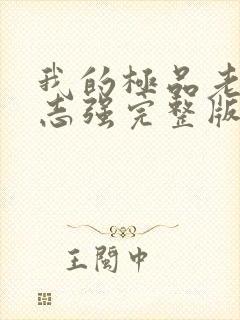 我的極品老
志强完整版
王閩中